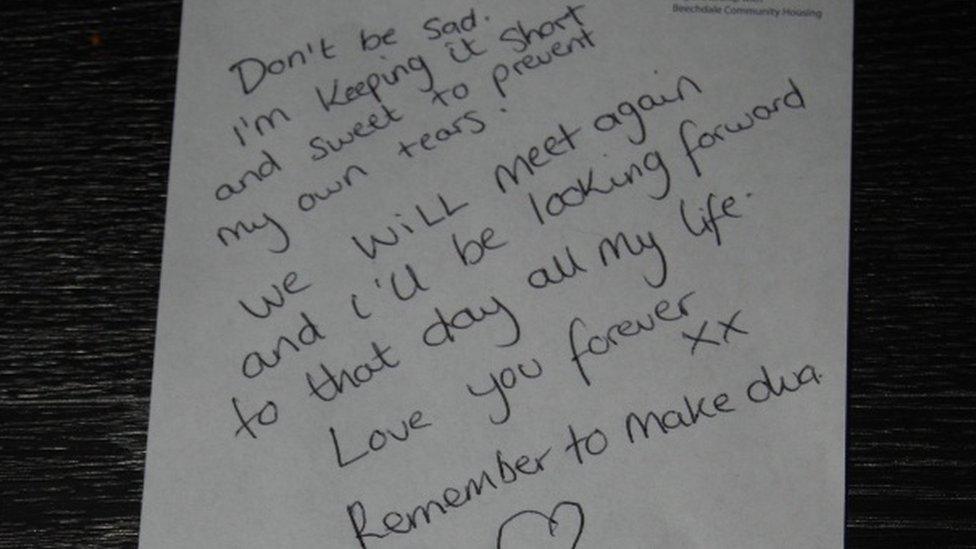 Beechdale Community Housing
Don't be sad.
I'm keeping it short
and sweet to prevent
my own tears!
We WiLL meet again
and i'll be looking forward
to that day all my life.
Love you forever
xx
Remember to make dua.